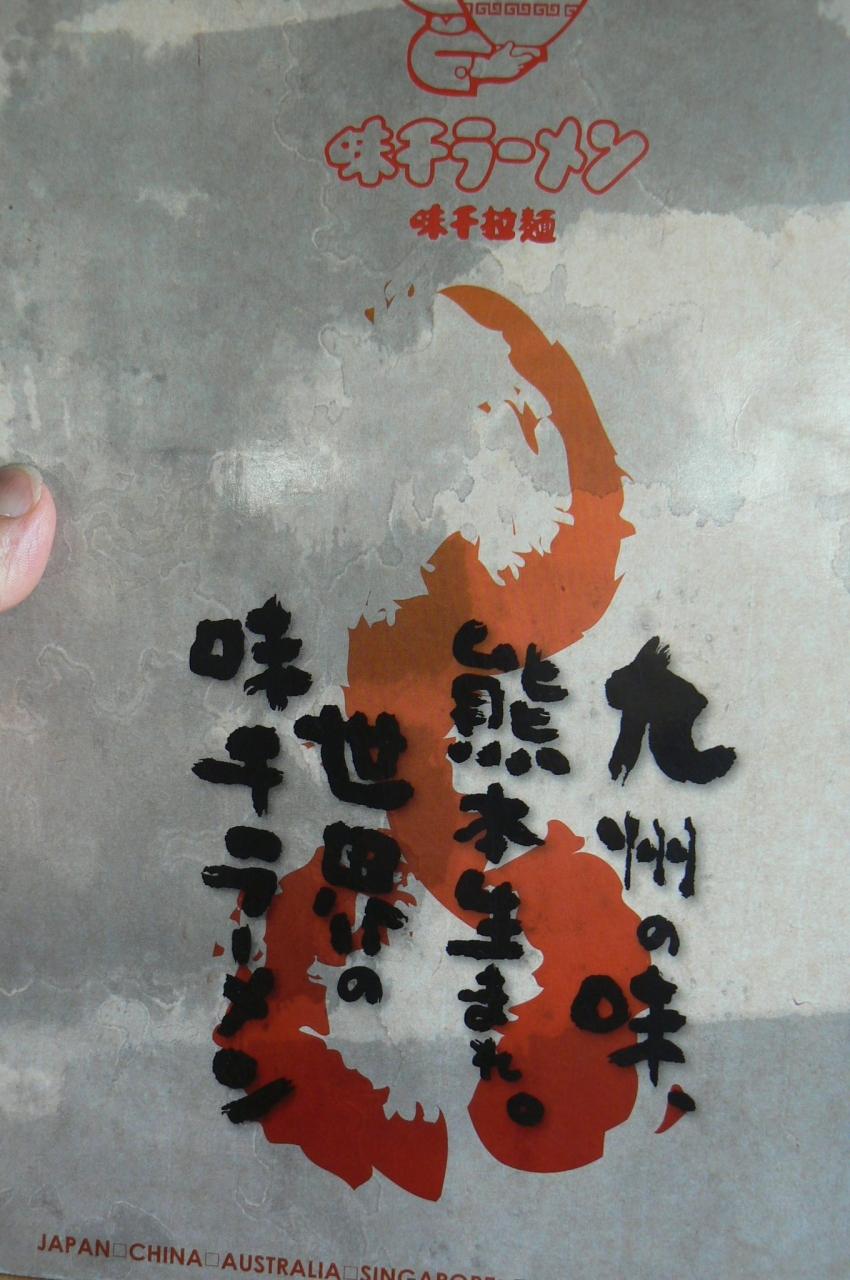 味千ラーメン
味千拉麺
九州の味、
熊本生まれ。
世界の
味千ラーメン
JAPAN□CHINA□AUSTRALIA□SINGAPORE